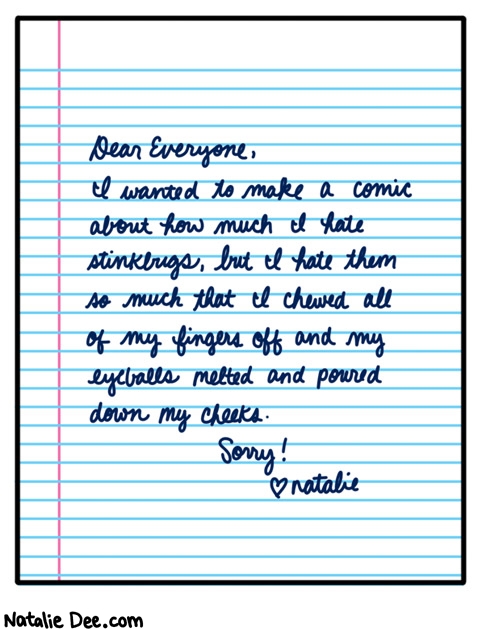 Dear Everyone,
I wanted to make a comic
about how much I hate
stinkbugs, but I hate them
so much that I chewed all
of my fingers off and my
eyeballs melted and poured
down my cheeks.
Sorry!
♡natalie
Natalie Dee.com